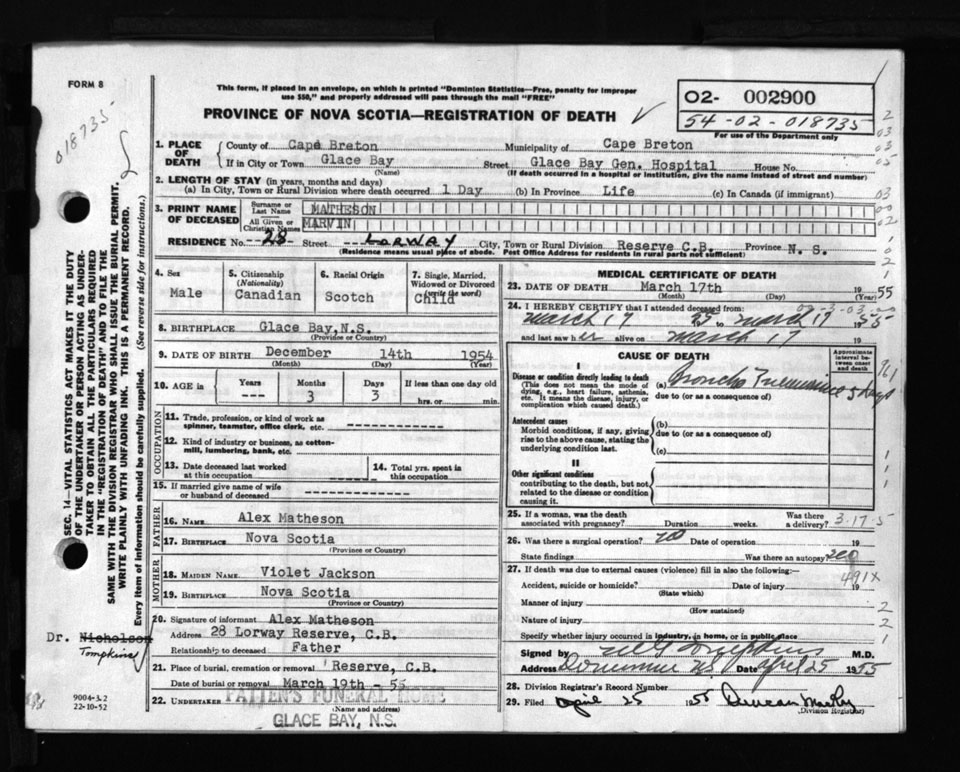 FORM 8
018735
This form, if placed in an envelope, on which is printed "Dominion Statistics—Free, penalty for improper
use $50," and properly addressed will pass through the mail "FREE"
PROVINCE OF NOVA SCOTIA—REGISTRATION OF DEATH
O2- 002900
54-02-018735
For use of the Department only
1. PLACE OF DEATH
County of Cape Breton Municipality of Cape Breton
If in City or Town Glace Bay Street Glace Bay Gen. Hospital House No.
(Name) (If death occurred in a hospital or institution, give the name instead of street and number)
2. LENGTH OF STAY (in years, months and days)
(a) In City, Town or Rural Division where death occurred 1 Day (b) In Province Life (c) In Canada (if immigrant)
3. PRINT NAME OF DECEASED
Surname or Last Name MATHESON
All Given or Christian Names MARVIN
RESIDENCE No. 28 Street LORWAY City, Town or Rural Division Reserve C.B. Province N. S.
(Residence means usual place of abode. Post Office Address for residents in rural parts not sufficient)
4. Sex
Male
5. Citizenship
(Nationality)
Canadian
6. Racial Origin
Scotch
7. Single, Married, Widowed or Divorced
(write the word)
Child
8. BIRTHPLACE Glace Bay, N.S.
(Province or Country)
9. DATE OF BIRTH December 14th 1954
(Month) (Day) (Year)
10. AGE in Years Months Days If less than one day old
--- 3 3 hrs. or min.
OCCUPATION
11. Trade, profession, or kind of work as
spinner, teamster, office clerk, etc.
12. Kind of industry or business, as cotton-
mill, lumbering, bank, etc.
13. Date deceased last worked
at this occupation
14. Total yrs. spent in
this occupation
15. If married give name of wife
or husband of deceased
FATHER
16. NAME Alex Matheson
17. BIRTHPLACE Nova Scotia
(Province or Country)
MOTHER
18. MAIDEN NAME Violet Jackson
19. BIRTHPLACE Nova Scotia
(Province or Country)
20. Signature of informant Alex Matheson
Address 28 Lorway Reserve, C.B.
Relationship to deceased Father
21. Place of burial, cremation or removal Reserve, C.B.
Date of burial or removal March 19th - 55
22. UNDERTAKER PATTEN'S FUNERAL HOME
(Name and address)
GLACE BAY, N.S.
MEDICAL CERTIFICATE OF DEATH
23. DATE OF DEATH March 17th 1955
(Month) (Day) (Year)
24. I HEREBY CERTIFY that I attended deceased from:
March 17 55 to March 17 1955
and last saw her alive on March 17 19
CAUSE OF DEATH
Approximate interval between onset and death
I
Disease or condition directly leading to death
(This does not mean the mode of dying, e.g., heart failure, asthenia, etc. It means the disease, injury, or complication which caused death.)
(a) Broncho Pneumonia 5 days
due to (or as a consequence of)
Antecedent causes
Morbid conditions, if any, giving rise to the above cause, stating the underlying condition last.
(b)
due to (or as a consequence of)
(c)
II
Other significant conditions
contributing to the death, but not related to the disease or condition causing it.
25. If a woman, was the death
associated with pregnancy? Duration weeks. Was there a delivery? 3-17-5
26. Was there a surgical operation? no Date of operation 19
State findings Was there an autopsy? no
27. If death was due to external causes (violence) fill in also the following:—
491X
Accident, suicide or homicide? Date of injury 19
(State which)
Manner of injury
(How sustained)
Nature of injury
Specify whether injury occurred in industry, in home, or in public place
Signed by Tompkins M.D.
Address Dominion N.S. Date April 25 1955
28. Division Registrar's Record Number
29. Filed April 25 1955 Duncan MacKay
(Division Registrar)
SEC. 14—VITAL STATISTICS ACT MAKES IT THE DUTY
OF THE UNDERTAKER OR PERSON ACTING AS UNDER-
TAKER TO OBTAIN ALL THE PARTICULARS REQUIRED
IN THE "REGISTRATION OF DEATH" AND TO FILE THE
SAME WITH THE DIVISION REGISTRAR WHO SHALL ISSUE THE BURIAL PERMIT.
WRITE PLAINLY WITH UNFADING INK. THIS IS A PERMANENT RECORD.
Every item of information should be carefully supplied. (See reverse side for instructions.)
Dr. Nicholson
Tompkins
9004-3.2
22-10-52